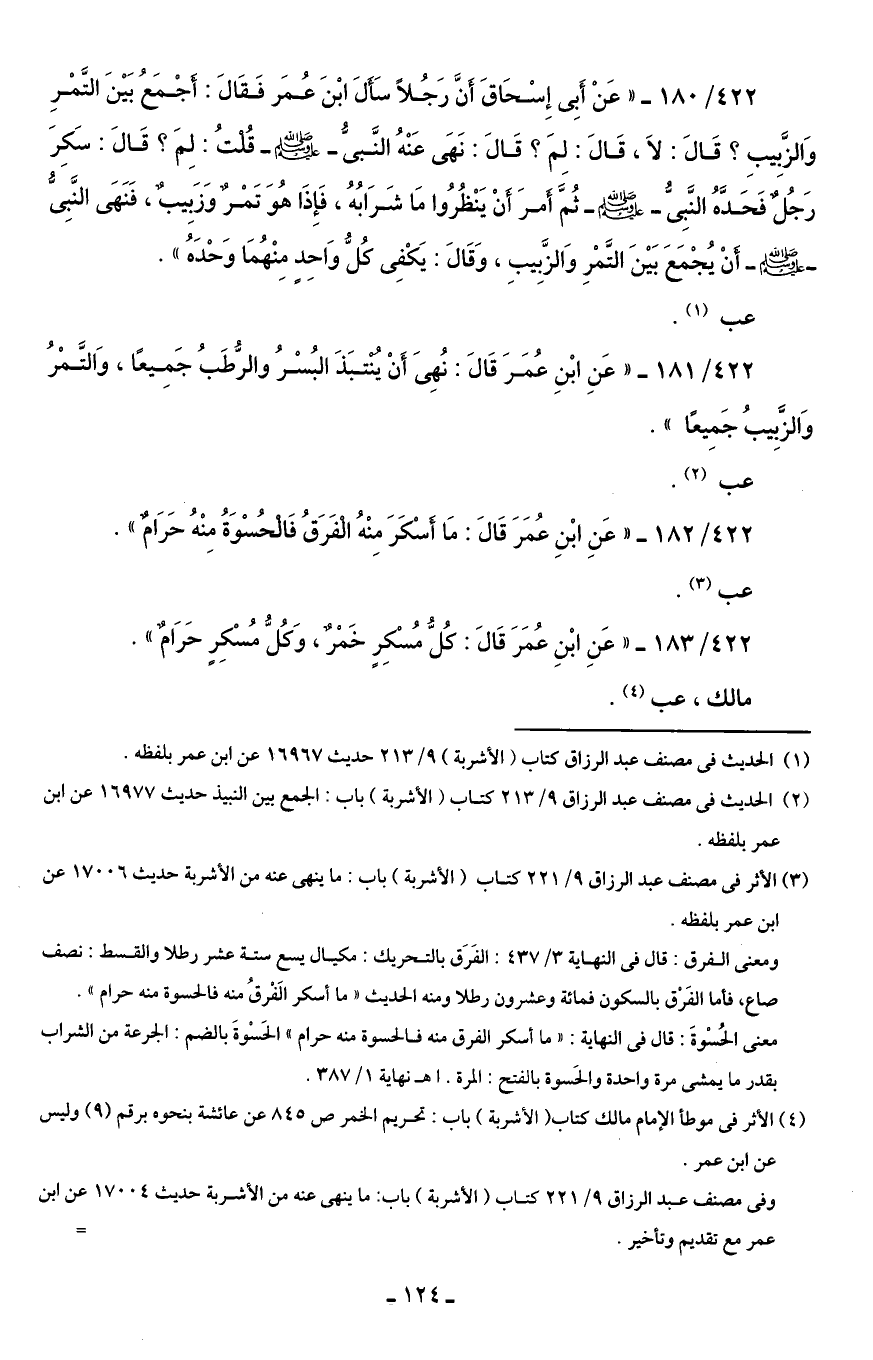 ٤٢٢/ ١٨٠ ـ « عَنْ أَبِى إِسْحَاقَ أَنَّ رَجُلاً سَأَلَ ابْنَ عُمَرَ فَقَالَ : أَجْمَعُ بَيْنَ التَّمْرِ
وَالزَّبِيبِ ؟ قَالَ : لاَ ، قَالَ : لِمَ ؟ قَالَ : نَهَى عَنْهُ النَّبِىُّ ـ ﷺ ـ قُلْتُ : لِمَ ؟ قَالَ : سَكِرَ
رَجُلٌ فَحَدَّهُ النَّبِىُّ ـ ﷺ ـ ثُمَّ أَمَرَ أَنْ يَنْظُرُوا مَا شَرَابُهُ ، فَإِذَا هُوَ تَمْرٌ وَزَبِيبٌ ، فَنَهَى النَّبِىُّ
ـ ﷺ ـ أَنْ يُجْمَعَ بَيْنَ التَّمْرِ وَالزَّبِيبِ ، وَقَالَ : يَكْفِى كُلُّ وَاحِدٍ مِنْهُمَا وَحْدَهُ » .
عب (١) .
٤٢٢/ ١٨١ ـ « عَنِ ابْنِ عُمَرَ قَالَ : نُهِىَ أَنْ يُنْتَبَذَ البُسْرُ والرُّطَبُ جَمِيعًا ، وَالتَّمْرُ
وَالزَّبِيبُ جَمِيعًا » .
عب (٢) .
٤٢٢/ ١٨٢ ـ « عَنِ ابْنِ عُمَرَ قَالَ : مَا أَسْكَرَ مِنْهُ الْفَرَقُ فَالْحُسْوَةُ مِنْهُ حَرَامٌ » .
عب (٣) .
٤٢٢/ ١٨٣ ـ « عَنِ ابْنِ عُمَرَ قَالَ : كُلُّ مُسْكِرٍ خَمْرٌ ، وَكُلُّ مُسْكِرٍ حَرَامٌ » .
مالك ، عب (٤) .
(١) الحديث فى مصنف عبد الرزاق كتاب ( الأشربة ) ٩/ ٢١٣ حديث ١٦٩٦٧ عن ابن عمر بلفظه .
(٢) الحديث فى مصنف عبد الرزاق ٩/ ٢١٣ كتاب ( الأشربة ) باب : الجمع بين النبيذ حديث ١٦٩٧٧ عن ابن
عمر بلفظه .
(٣) الأثر فى مصنف عبد الرزاق ٩/ ٢٢١ كتاب ( الأشربة ) باب : ما ينهى عنه من الأشربة حديث ١٧٠٠٦ عن
ابن عمر بلفظه .
ومعنى الفرق : قال فى النهاية ٣/ ٤٣٧ : الفَرَق بالتحريك : مكيال يسع ستة عشر رطلا والقسط : نصف
صاع، فأما الفَرْق بالسكون فمائة وعشرون رطلا ومنه الحديث « ما أسكر الَفْرقُ منه فالحسوة منه حرام » .
معنى الحُسْوةَ : قال فى النهاية : « ما أسكر الفرق منه فالحسوة منه حرام » الحَسْوةَ بالضم : الجرعة من الشراب
بقدر ما يمشى مرة واحدة والحَسوة بالفتح : المرة . ا هـ نهاية ١/ ٣٨٧ .
(٤) الأثر فى موطأ الإمام مالك كتاب( الأشربة ) باب : تحريم الخمر ص ٨٤٥ عن عائشة بنحوه برقم (٩) وليس
عن ابن عمر .
وفى مصنف عبد الرزاق ٩/ ٢٢١ كتاب ( الأشربة ) باب: ما ينهى عنه من الأشربة حديث ١٧٠٠٤ عن ابن
عمر مع تقديم وتأخير . =
ـ ١٢٤ ـ